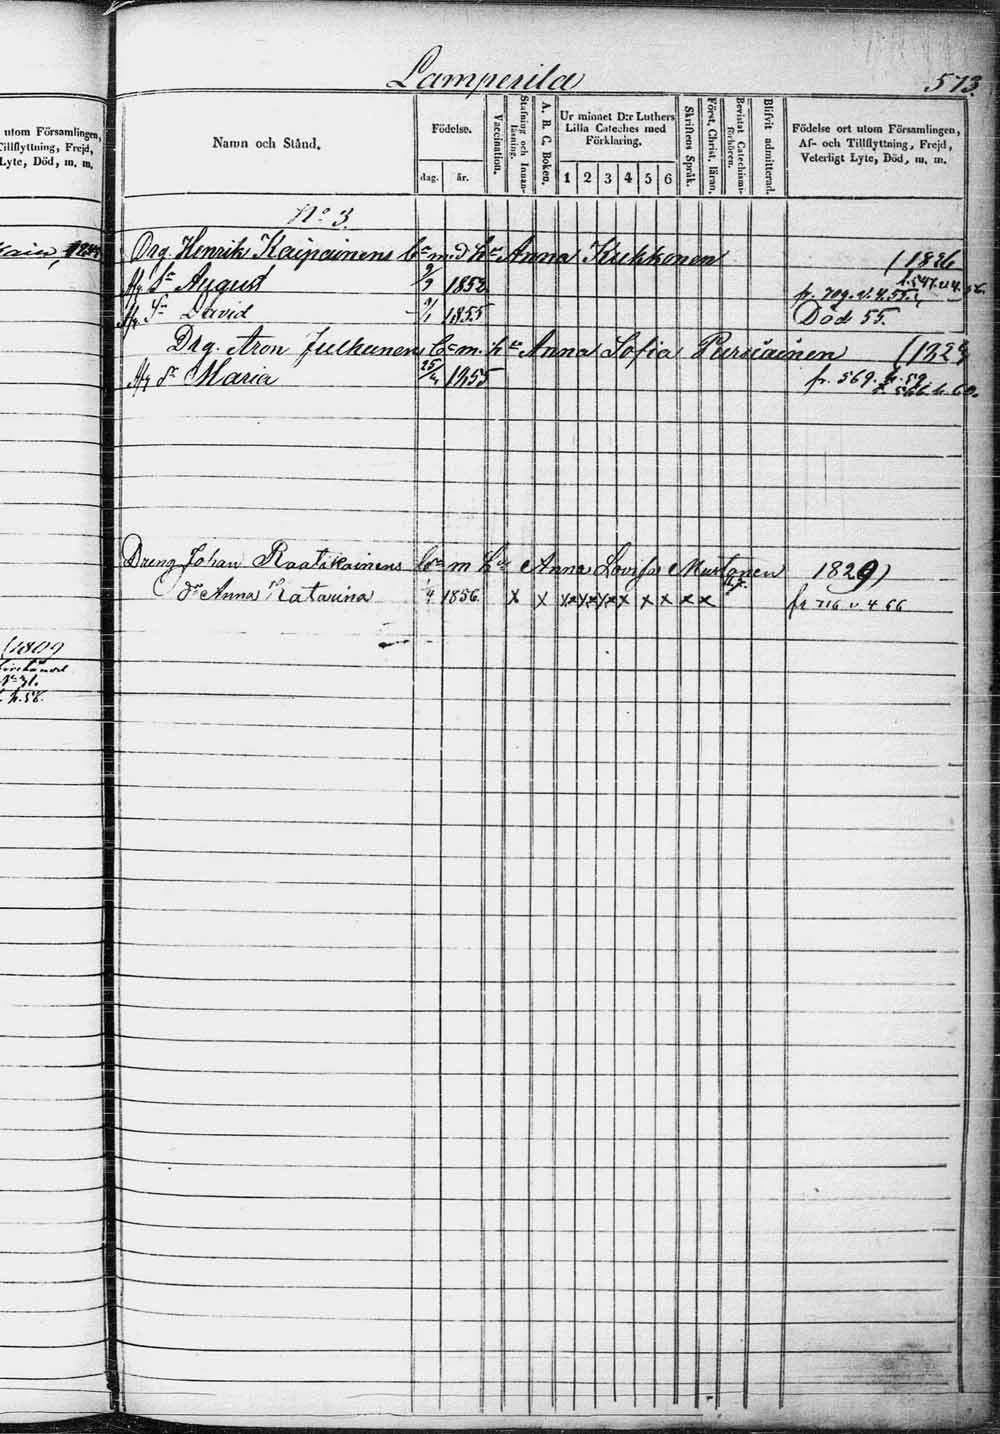 Lamperila
573.
utom Församlingen,
Tillflyttning, Frejd,
Lyte, Död, m. m.
Namn och Stånd.
Födelse.
dag. år.
Vaccination.
Stafning och Innanläsning.
A. B. C. Boken.
Ur minnet D:r Luthers
Lilla Cateches med
Förklaring.
1 2 3 4 5 6
Skriftens Språk.
Först. Christ. läran.
Bevistat Catechismiförhören.
Blifvit admitterad.
Födelse ort utom Församlingen,
Af- och Tillflyttning, Frejd,
Veterligt Lyte, Död, m. m.
No 3.
Drg. Henrik Kaipainens m. d. hu Anna Kukkonen (1826
Sn August 9/7 1852. fr. 709. v. 4. 55.
Sn David 1855 Död 55.
Drg. Aron Julkunens m. hu Anna Sofia Pursiainen
Maria 25/4 1855 fr. 569. h. 59.
566 h. 60.
Dreng Johan Raatikainens m hu Anna Lovisa Mustonen 1829)
dr Anna Katarina 1/4 1856. x x x x x x x x x x x x x x fr 716 v 4 66
(1809
h. 58.